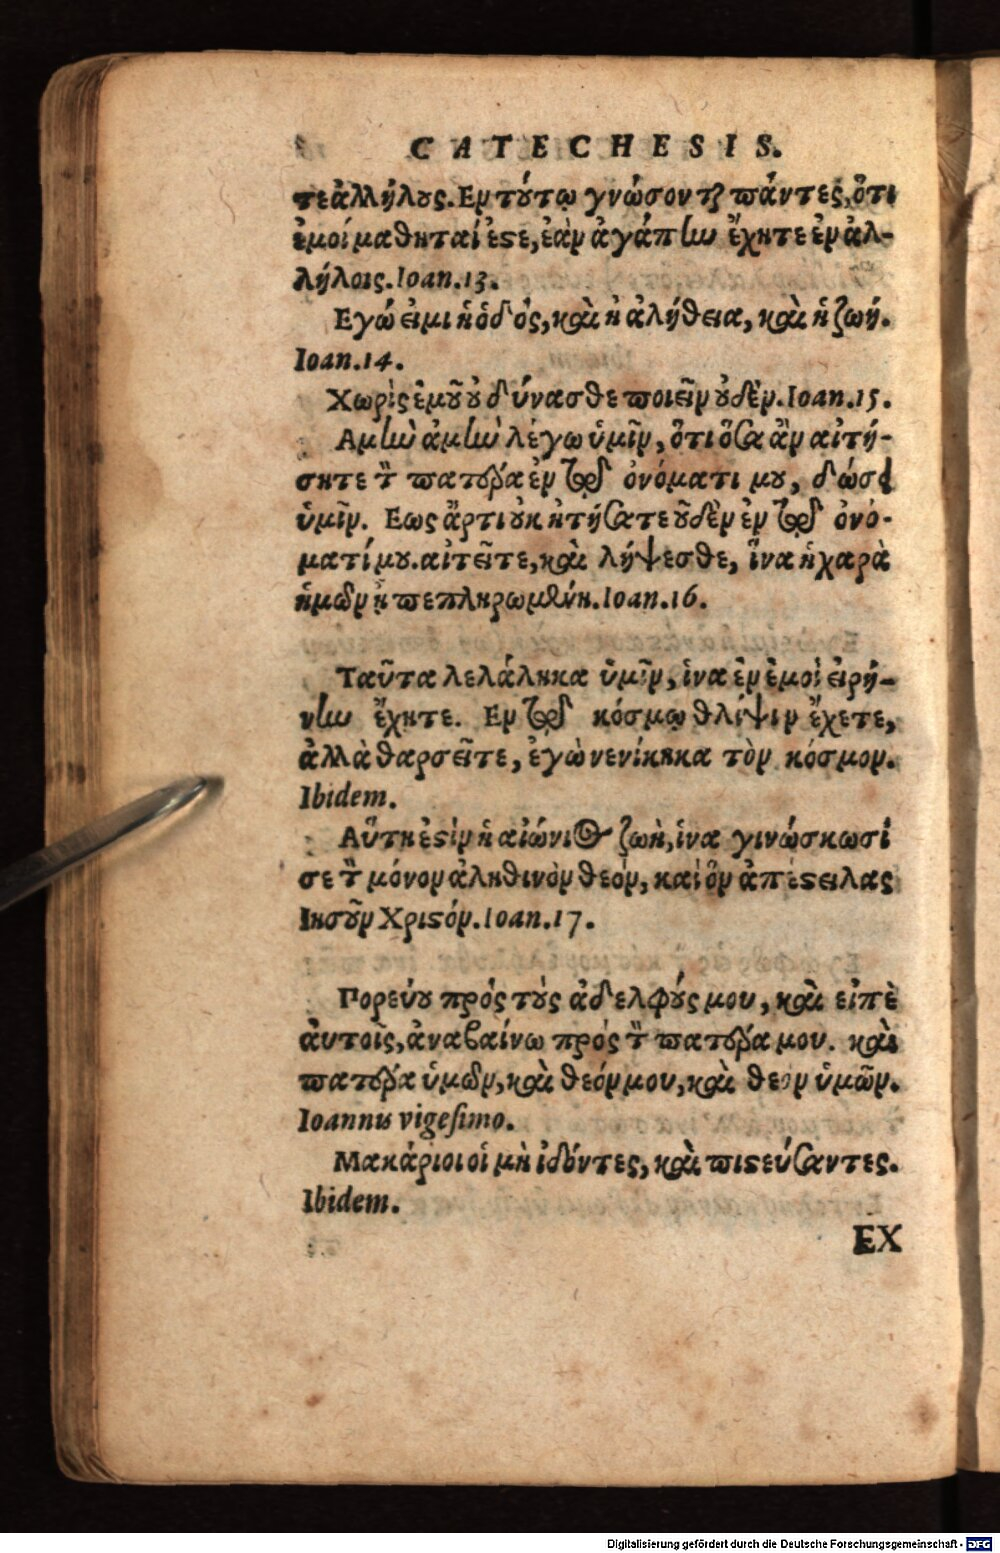 CATECHESIS.
τε ἀλλήλους. Εν τούτῳ γνώσονται πάντες, ὅτι
ἐμοί μαθηταί ἐστε, ἐὰν ἀγάπην ἔχητε ἐν ἀλ-
λήλοις. Ioan. 13.
Εγώ ειμι ἡ ὁδός, καὶ ἡ ἀλήθεια, καὶ ἡ ζωή.
Ioan. 14.
Χωρὶς ἐμοῦ οὐ δύνασθε ποιεῖν οὐδὲν. Ioan. 15.
Αμὴν ἀμὴν λέγω ὑμῖν, ὅτι ὅσα ἂν αἰτή-
σητε τὸν πατέρα ἐν τῷ ὀνόματι μου, δώσει
ὑμῖν. Εως ἄρτι οὐκ ἠτήσατε οὐδὲν ἐν τῷ ὀνό-
ματί μου. αἰτεῖτε, καὶ λήψεσθε, ἵνα ἡ χαρὰ
ἡμῶν ᾖ πεπληρωμένη. Ioan. 16.
Ταῦτα λελάληκα ὑμῖν, ἵνα ἐν ἐμοὶ εἰρή-
νην ἔχητε. Εν τῷ κόσμῳ θλίψιν ἔχετε,
ἀλλὰ θαρσεῖτε, ἐγὼ νενίκηκα τὸν κόσμον.
Ibidem.
Αὕτη ἐστὶν ἡ αἰώνιος ζωὴ, ἵνα γινώσκωσί
σε τὸν μόνον ἀληθινὸν θεόν, καὶ ὃν ἀπέστειλας
Ιησοῦν Χριστόν. Ioan. 17.
Πορεύου πρός τούς ἀδελφούς μου, καὶ εἰπὲ
ἀυτοῖς, ἀναβαίνω πρός τὸν πατέρα μου. καὶ
πατέρα ὑμῶν, καὶ θεόν μου, καὶ θεον ὑμῶν.
Ioannis vigesimo.
Μακάριοι οἱ μὴ ἰδόντες, καὶ πιστεύσαντες.
Ibidem.
EX
Digitalisierung gefördert durch die Deutsche Forschungsgemeinschaft - DFG